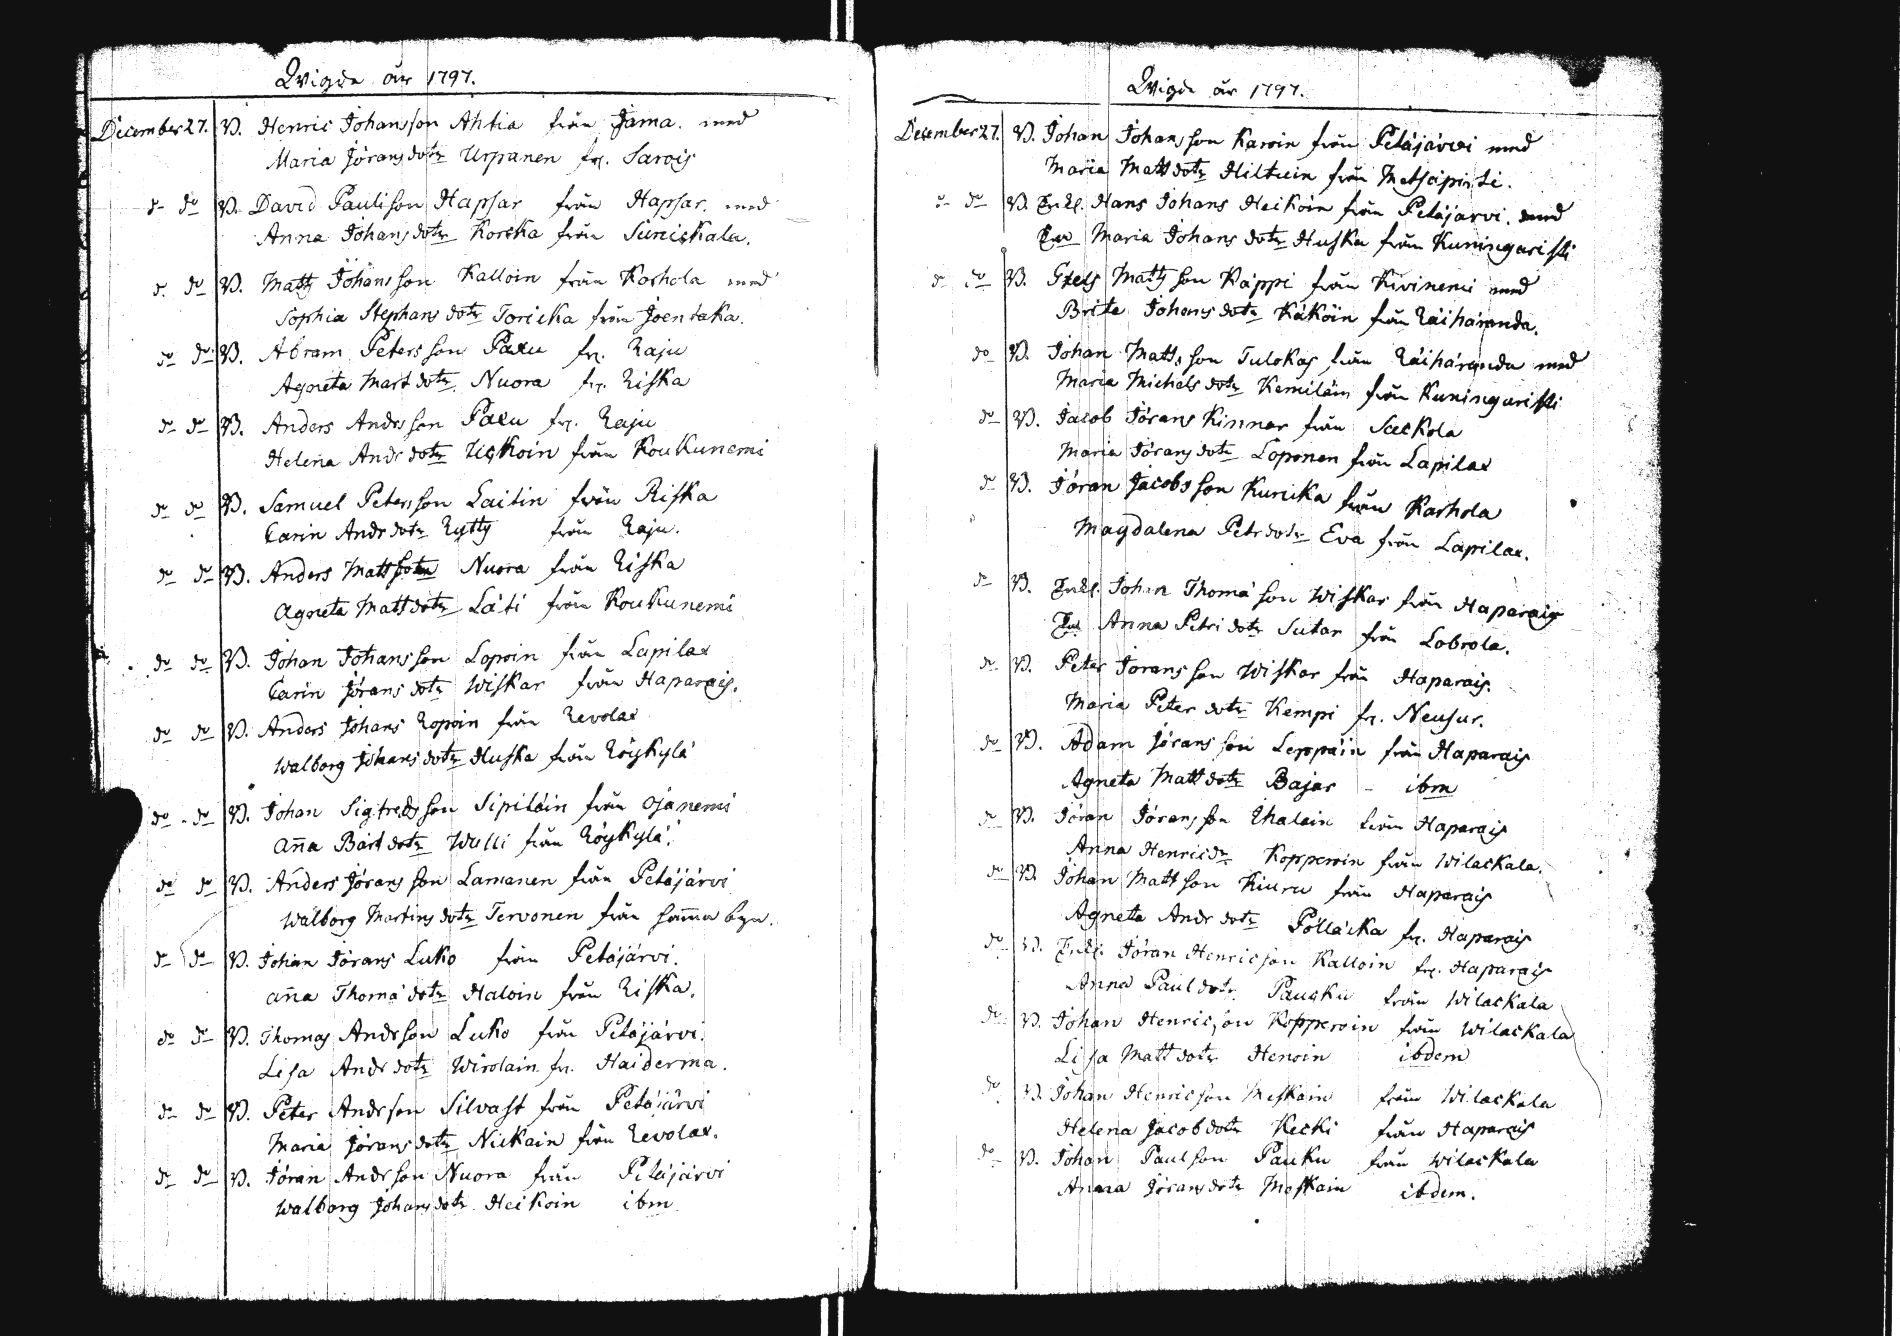 Qvigde år 1797.
December 27. V. Henric Johansson Ahtia från Jama. med
Maria Jörans dotr Urpanen fr. Sarois
do do V. David Paulison Hapsar från Hapsar. med
Anna Johans dotr Korkka från Sunickala.
do do V. Matts Johansson Kalloin från Korhola med
Sophia Stephans dotr Toricka från Joentaka.
do do V. Abram Petersson Paxu fr. Raju
Agneta Mart dotr Nuora fr. Riska
do do V. Anders Andersson Paxu fr. Raju
Helena Andr dotr Uskoin från Koukunemi
do do V. Samuel Petersson Laitin från Riska
Carin Andr dotr Rytty från Raju.
do do V. Anders Mattson Nuora från Riska
Agneta Matt dotr Läti från Koukunemi
do do V. Johan Johansson Lopoin från Lapilax
Carin Jörans dotr Wiskar från Haparais.
do do V. Anders Johans Ropoin från Revolax
Walborg Johans dotr Huska från Röykylä
do do V. Johan Sigfredsson Sipiläin från Ojanemi
Anna Bärt dotr Wulli från Röykylä.
do do V. Anders Jörans son Lamanen från Petäjärvi
Walborg Martins dotr Tervonen från samma byn.
do do V. Johan Jörans Luko från Petäjärvi.
Anna Thoma dotr Haloin från Riska.
do do V. Thomas Andrson Luko från Petäjärvi.
Lisa Andr dotr Wirolain fr. Haiderma.
do do V. Peter Andrson Silvast från Petäjärvi
Maria Jörans dotr Nickain från Revolax.
do do V. Jöran Andrson Nuora från Petäjärvi
Walborg Johans dotr Heikoin ibm
Qvigde år 1797.
December 27. V. Johan Johansson Karvin från Petäjärvi med
Maria Matts dotr Hiltuin från Metsäpirti.
do do V. Enkl. Hans Johans Heikoin från Petäjärvi. med
Enk Maria Johans dotr Huska från Kuningaristi
do do V. Grels Mattsson Käppi från Kivinemi med
Brita Johans dotr Käköin från Räihäranda.
do V. Johan Mattsson Tulokas från Räihäranda med
Maria Michels dotr Kemiläin från Kuningaristi
do V. Jacob Jörans Kinnar från Sackola
Maria Jörans dotr Loponen från Lapilax
do V. Jöran Jacobsson Kuricka från Karhola
Magdalena Petr dotr Eva från Lapilax.
do V. Enkl. Johan Thomä son Wiskar från Haparais
Enk Anna Petri dotr Sutar från Lobrola.
do V. Peter Joransson Wiskar från Haparais.
Maria Peter dotr Kempi fr. Neusur.
do V. Adam Jörans son Leppäin från Haparais
Agneta Matt dotr Bajar - ibm
do V. Jöran Jöransson Ihalain från Haparais
Anna Henricdr Kopperoin från Wilackala.
do V. Johan Mattson Kiuru från Haparais
Agneta Andr dotr Pölläcka fr. Haparais
do V. Enkl. Jöran Henricson Kalloin fr. Haparais
Anna Paul dotr Pauku från Wilackala
do V. Johan Henricson Kopperoin från Wilackala
Lisa Matt dotr Henoin ibdem
do V. Johan Henricson Meskain från Wilackala
Helena Jacob dotr Kecki från Haparais
do V. Johan Paulson Pauku från Wilackala
Anna Jörans dotr Meskain ibdem.